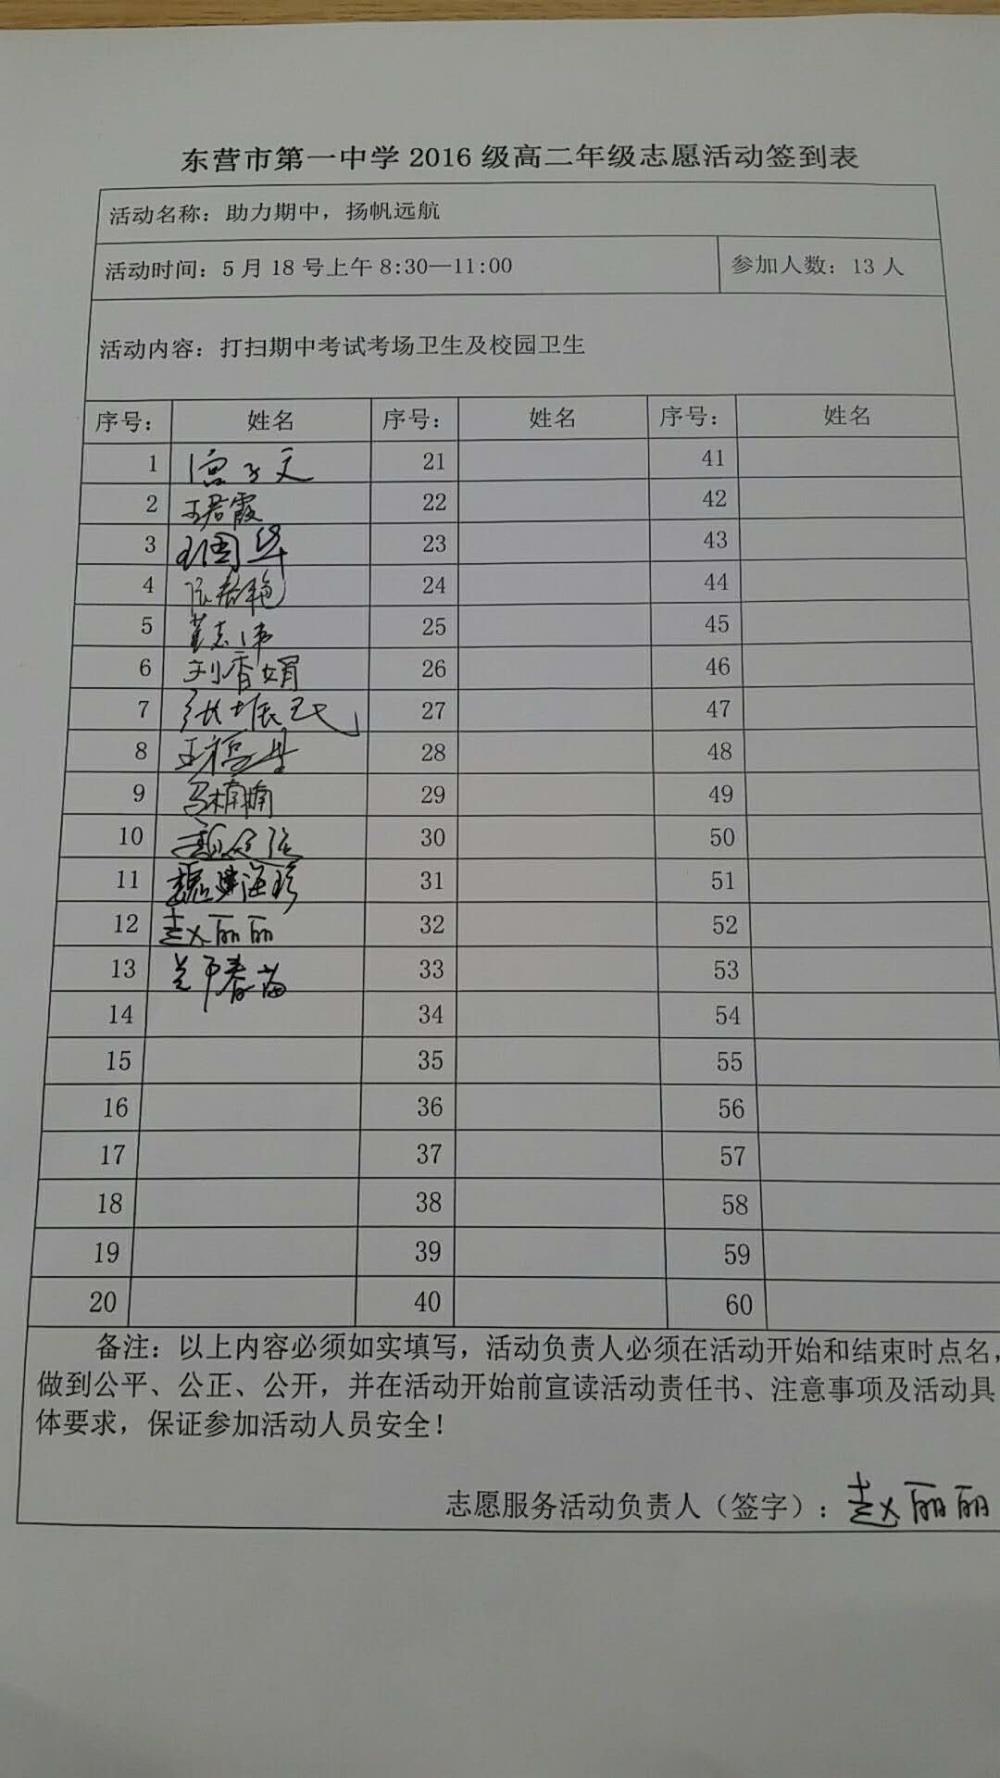 东营市第一中学 2016 级高二年级志愿活动签到表
活动名称：助力期中，扬帆远航
活动时间：5 月 18 号上午 8:30—11:00 参加人数：13 人
活动内容：打扫期中考试考场卫生及校园卫生
序号： 姓名 序号： 姓名 序号： 姓名
1 21 41
2 王君霞 22 42
3 王国华 23 43
4 24 44
5 董志伟 25 45
6 刘香娟 26 46
7 张振民 27 47
8 28 48
9 马楠楠 29 49
10 30 50
11 魏海珍 31 51
12 赵丽丽 32 52
13 兰春苗 33 53
14 34 54
15 35 55
16 36 56
17 37 57
18 38 58
19 39 59
20 40 60
备注：以上内容必须如实填写，活动负责人必须在活动开始和结束时点名，
做到公平、公正、公开，并在活动开始前宣读活动责任书、注意事项及活动具
体要求，保证参加活动人员安全！
志愿服务活动负责人（签字）：赵丽丽